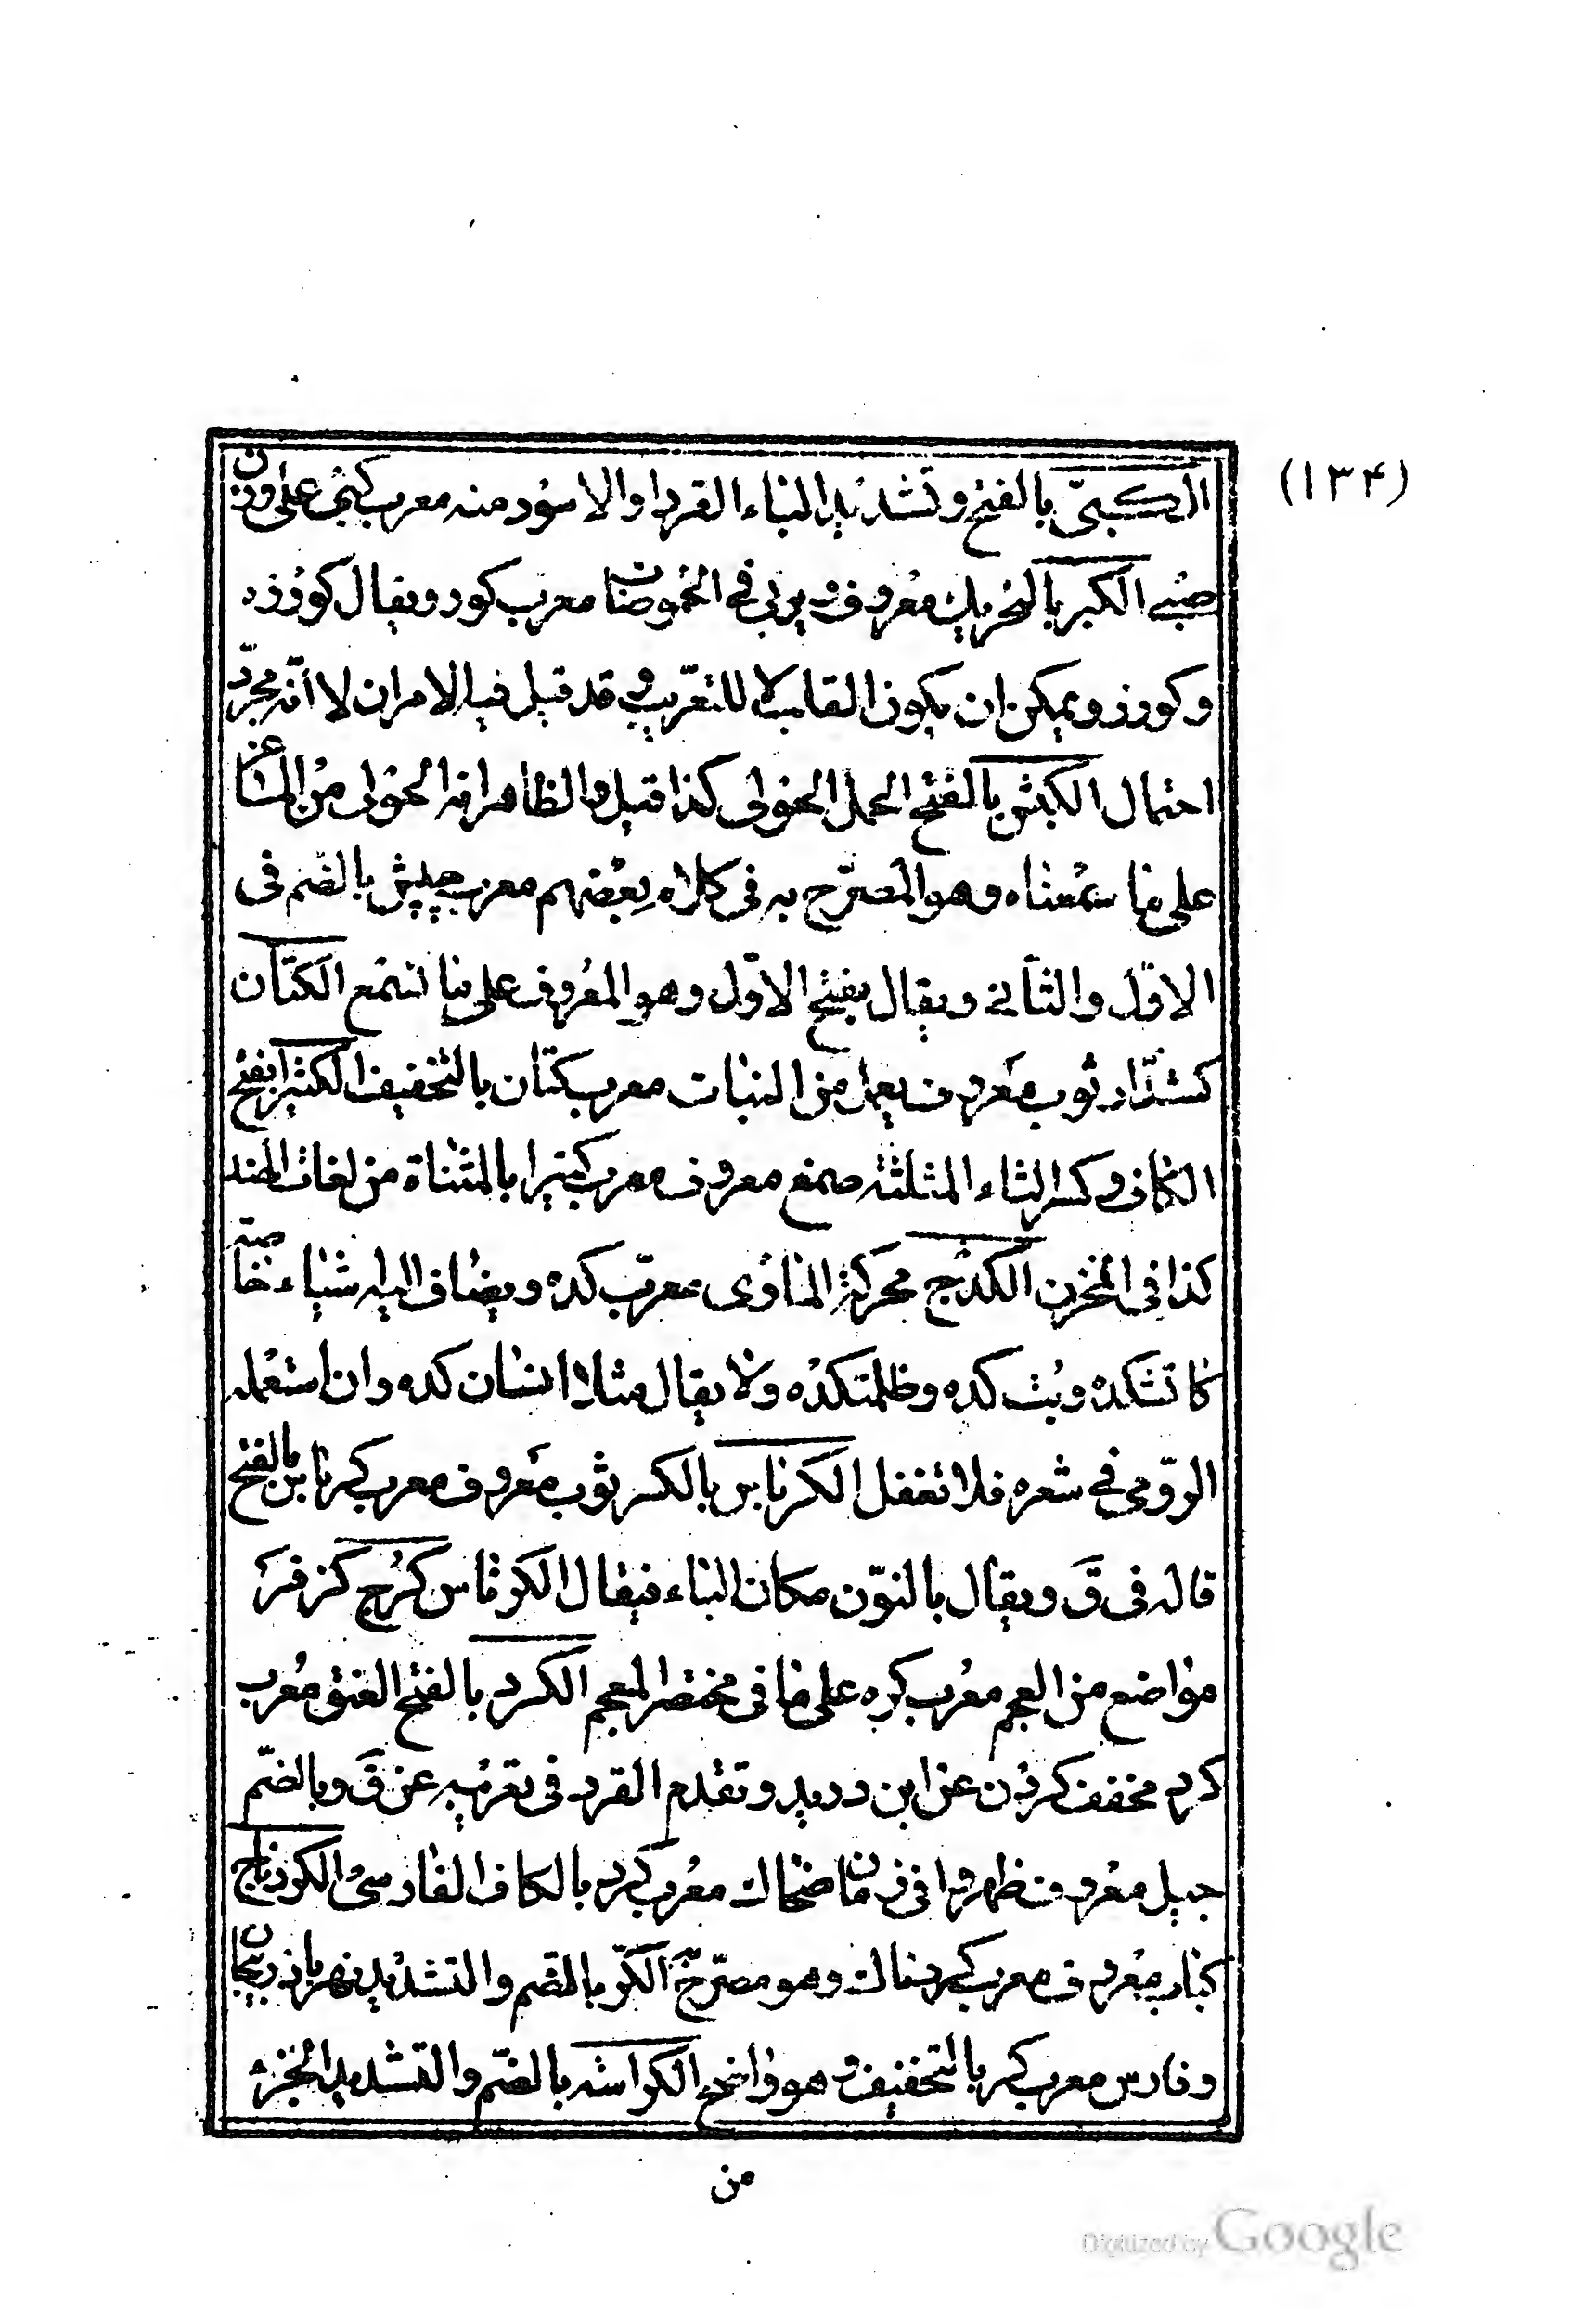 (۱۳۴)
الكبىّ بالفتح وتشديد الباء القرد او الاسود منه معرب كبى على وزن
صبى الكبر بالتحريك معروف ويربى فى الحموضات معرب كور ويقال كورزه
وكورز ويمكن ان يكون القلب لا للتعريب وقد قيل فيه الامران لا انّه مجرّد
احتمال الكبش بالفتح الحمل الحولى كذا قيل والظاهر انه الحولى من المشاعز
على ما سمعناه وهو المصرّح به فى كلام بعضهم معرب چپش بالضم فى
الاوّل والثانى ويقال بفتح الاوّل وهو المعروف على ما نستمع الكتّان
كشدّاد ثوب معروف يعمل من النبات معرب كتان بالتخفيف الكثيرا بفتح
الكاف وكسر الثاء المثلثة صمغ معروف معرب كتيرا بالمثناة من لغات الهند
كذا فى المخزن الكدج محركة المأوى معرّب كده ويضاف اليه شياء خاصّة
كاتشكده وبت كده وظلمتكده ولا يقال مثلا انسان كده وان استعمله
الرومى فى شعره فلا تغفل الكرباس بالكسر ثوب معروف معرب كرباس بالفتح
قاله فى ق ويقال بالنون مكان الباء فيقال الكرناس كرج كزفر
مواضع من العجم معرب كره على ما فى مختصر المعجم الكرد بالفتح العنق معرب
كرد مخفف كردن عن ابن دريد وتقدم القرد فى تعريبه عن ق وبالضمّ
جيل معروف ظهروا فى زمان ضحاك معرب كرد بالكاف الفارسى الكردناج
كباب معروف معرب كردناك وهو مصرّح الكرّ بالضم والتشديد نهر باذربيجان
وفارس معرب كر بالتخفيف وهو واضح الكراشه بالضمّ والتشديد الجزء
من
Digitized by Google